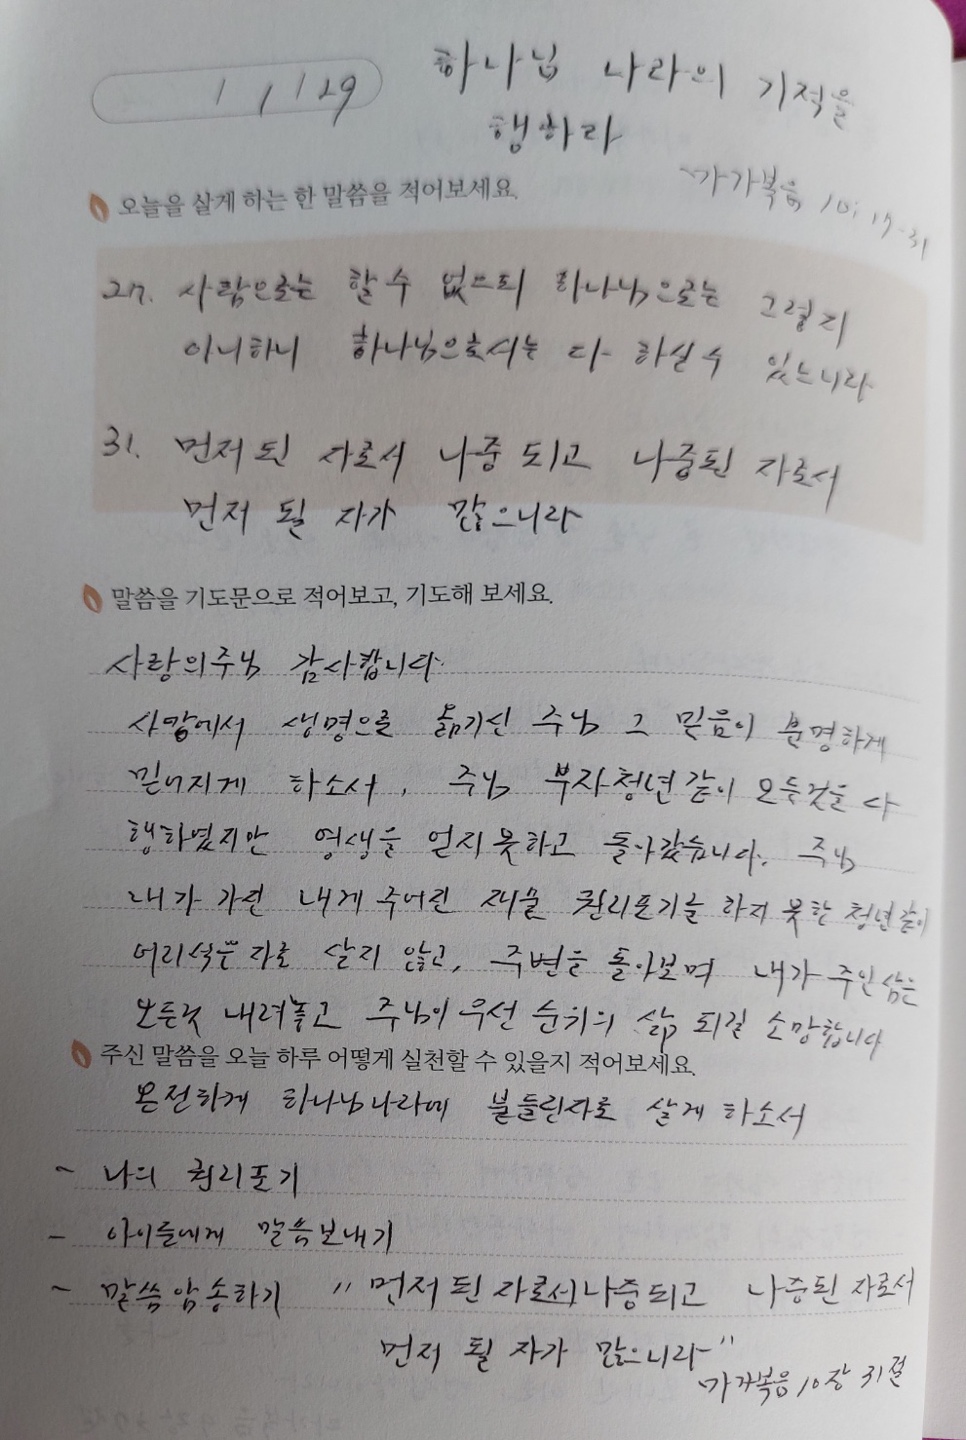 1 / 29
하나님 나라의 기적을
행하라
마가복음 10: 17-31
오늘을 살게 하는 한 말씀을 적어보세요.
27. 사람으로는 할 수 없으되 하나님으로는 그렇지
아니하니 하나님으로서는 다 하실 수 있느니라
31. 먼저 된 자로서 나중 되고 나중된 자로서
먼저 될 자가 많으니라
말씀을 기도문으로 적어보고, 기도해 보세요.
사랑의주님 감사합니다.
사망에서 생명으로 옮기신 주님 그 믿음이 분명하게
믿어지게 하소서, 주님 부자청년같이 모든것을 다
행하였지만 영생을 얻지못하고 돌아갔습니다. 주님
내가 가진 내게 주어진 재물 권리포기를 하지 못한 청년같이
어리석은 자로 살지 않고, 주변을 돌아보며 내가 주인삼은
모든것 내려놓고 주님이 우선 순위의 삶 되길 소망합니다
주신 말씀을 오늘 하루 어떻게 실천할 수 있을지 적어보세요.
온전하게 하나님나라에 붙들린자로 살게 하소서
~ 나의 권리포기
- 아이들에게 말씀보내기
~ 말씀암송하기 " 먼저 된 자로서나중되고 나중된 자로서
먼저 될 자가 많으니라"
마가복음 10장 31절